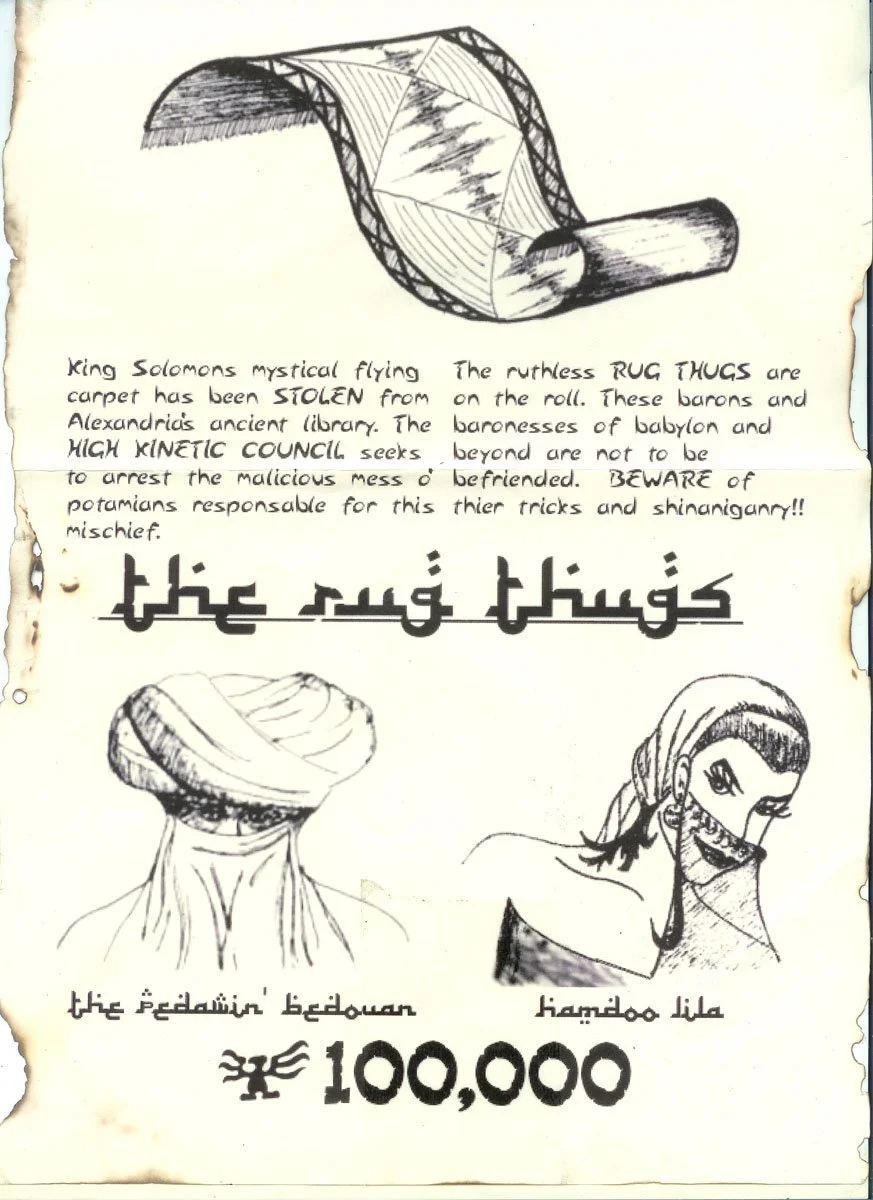 King Solomons mystical flying
carpet has been STOLEN from
Alexandria's ancient library. The
HIGH KINETIC COUNCIL seeks
to arrest the malicious mess o'
potamians responsable for this
mischief.
The ruthless RUG THUGS are
on the roll. These barons and
baronesses of babylon and
beyond are not to be
befriended. BEWARE of
thier tricks and shinaniganry!!
the rug thugs
the Pedawin' bedouan
hamdoo lila
100,000